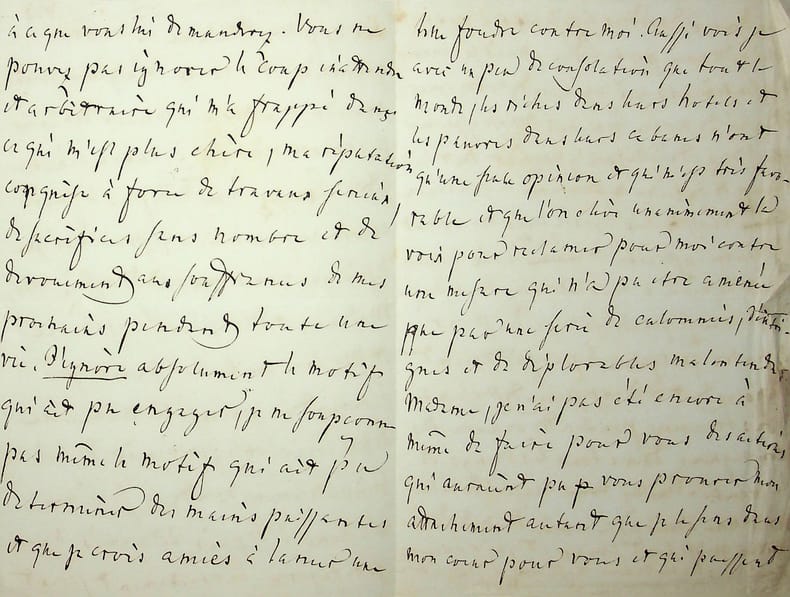 à ce que vous lui demandrez. Vous ne
pouvez pas ignorer le coup inattendu
et arbitraire qui m'a frappé dans
ce qui m'est plus chère, ma réputation
conquise à force de travaux serieux,
de sacrifices sans nombre et de
devouement aux souffrances de mes
prochains pendent toute une
vie. J'ignore absolument le motif
qui ait pu engager, je ne soupconne
pas même le motif qui ait pu
determiner des mains puissantes
et que je crois amies à lancer une
foudre contre moi. Aussi vois je
avec un peu de consolation que tout le
monde, les riches dans leurs hotels et
les pauvres dans leurs cabanes n'ont
qu'une seule opinion et qui m'est très favo-
rable et que l'on élève unanimement la
voix pour reclamer pour moi contre
une mesure qui n'a pu etre amenée
que par une serie de calomnies, d'intri-
gues et de deplorables malentendus.
Madame, je n'ai pas été encore à
même de faire pour vous des actions
qui auraient pu vous prouver mon
attachement autant que je le sens dans
mon coeur pour vous et qui puissent